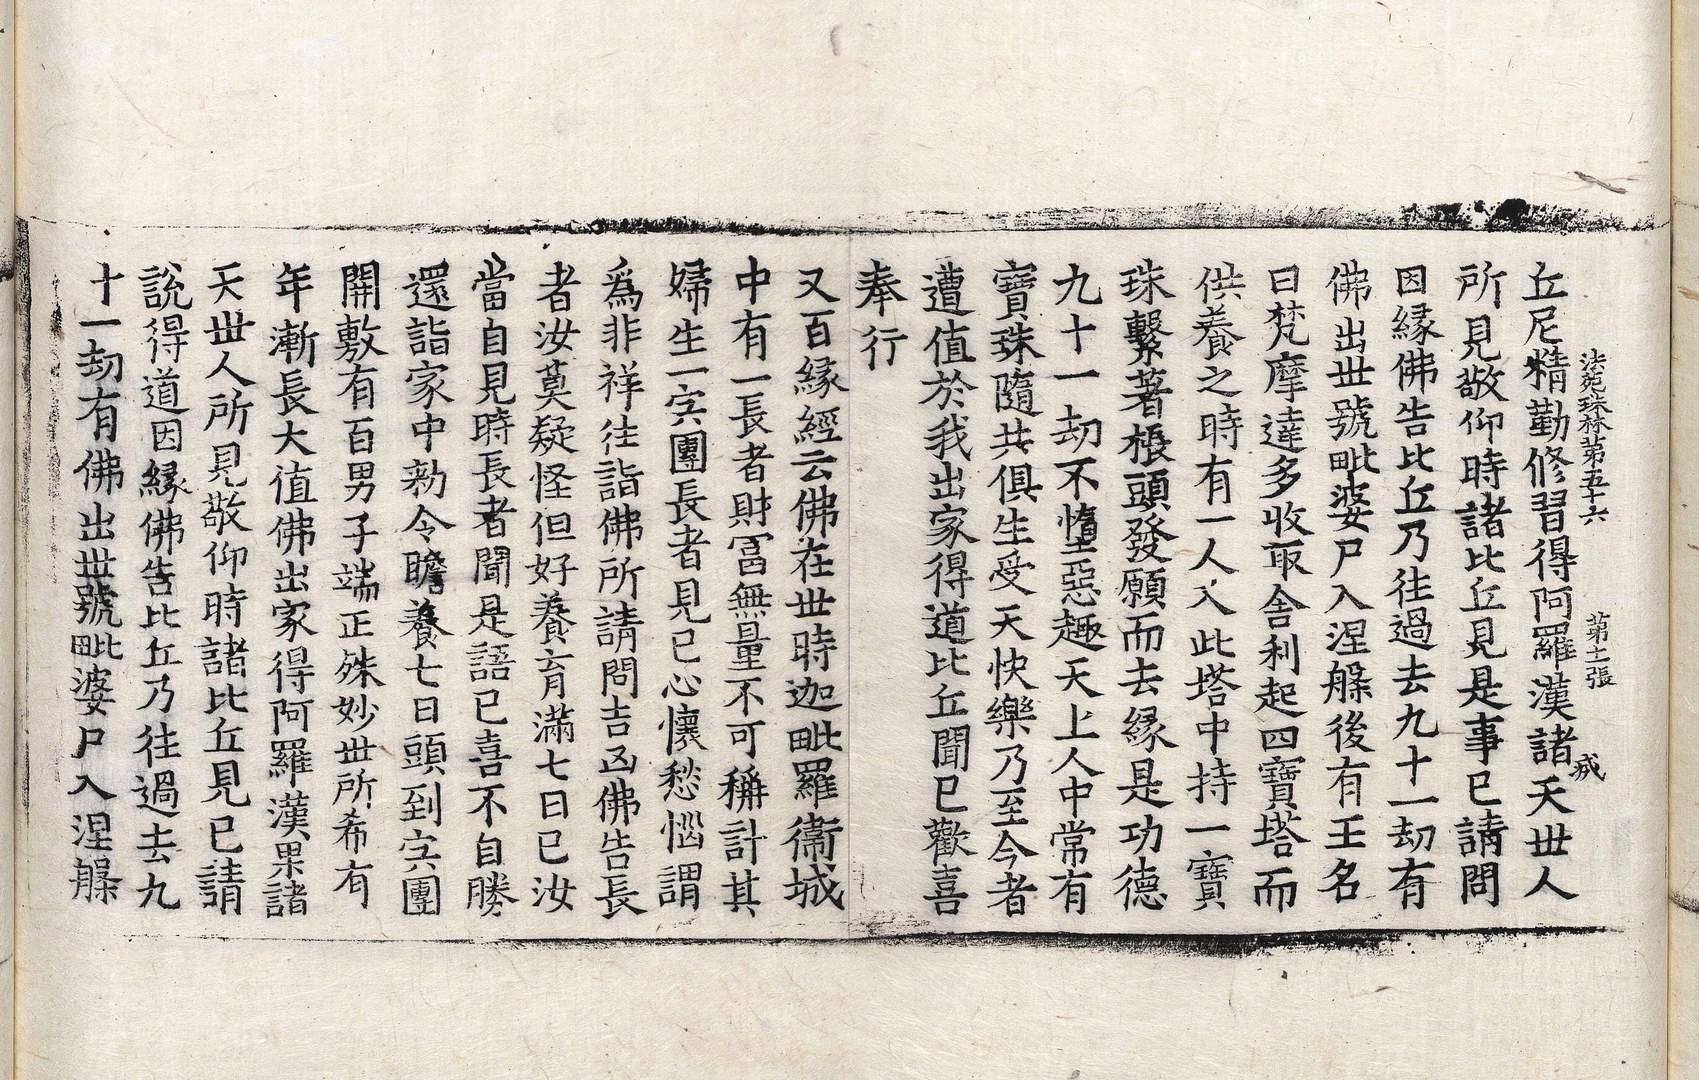 法苑珠林第五十六 第十二張 咸
丘尼精勤修習得阿羅漢諸天世人
所見敬仰時諸比丘見是事已請問
因縁佛告比丘乃往過去九十一劫有
佛出世號毗婆尸入涅槃後有王名
曰梵摩達多收取舍利起四寶塔而
供養之時有一人入此塔中持一寶
珠繫著棖頭發願而去縁是功德
九十一劫不墮惡趣天上人中常有
寶珠隨共俱生受天快樂乃至今者
遭值於我出家得道比丘聞已歡喜
奉行
又百縁經云佛在世時迦毗羅衛城
中有一長者財冨無量不可稱計其
婦生一宍團長者見已心懷愁惱謂
爲非祥往詣佛所請問吉凶佛告長
者汝莫疑怪但好養育滿七日已汝
當自見時長者聞是語已喜不自勝
還詣家中勑令瞻養七日頭到宍團
開敷有百男子端正殊妙世所希有
年漸長大值佛出家得阿羅漢果諸
天世人所見敬仰時諸比丘見已請
說得道因縁佛告比丘乃往過去九
十一劫有佛出世號毗婆尸入涅槃